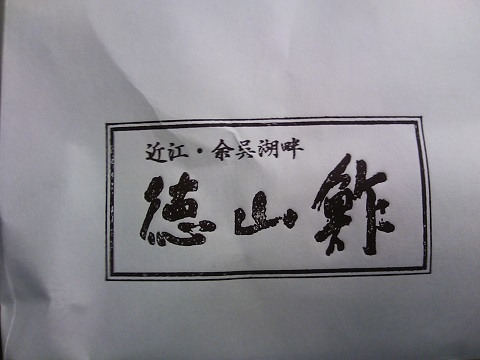 近江・余呉湖畔
徳山鮓